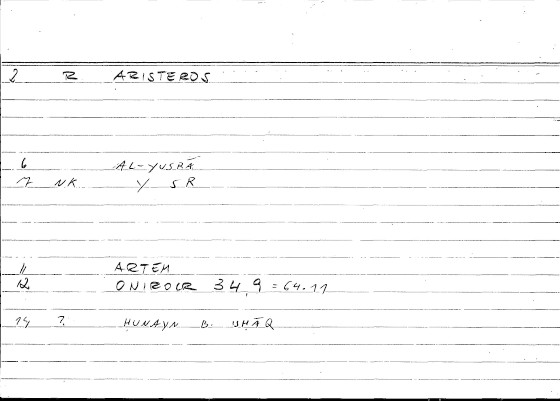 2 R ARISTEROS
6 AL-YUSRĀ
7 NK Y S R
11 ARTEM
12 ONIROCR 34,9 = 64.11
14 ? ḤUNAYN B. ISḤĀQ